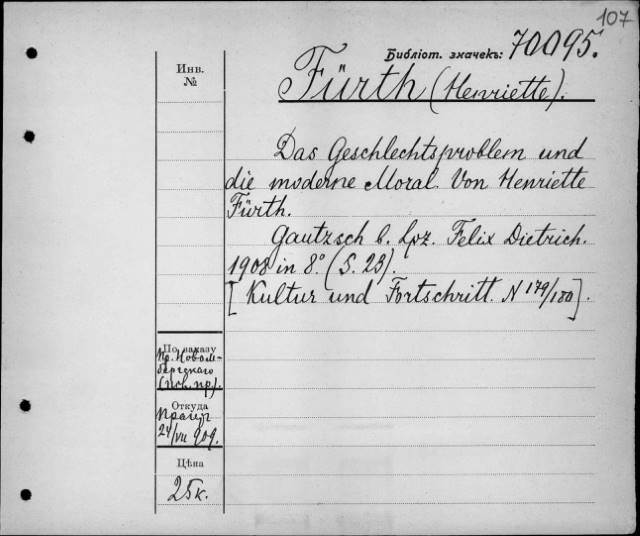 107
Библіот. значекъ: 70095.
Инв.
№
Fürth (Henriette).
Das Geschlechtsproblem und
die moderne Moral. Von Henriette
Fürth.
Gautzsch b. Lpz. Felix Dietrich.
1908 in 8° (S. 23).
[Kultur und Fortschritt. N 179/180].
По заказу
Пр. Новом-
бергскаго
Откуда
24/VII 909.
Цѣна
25к.